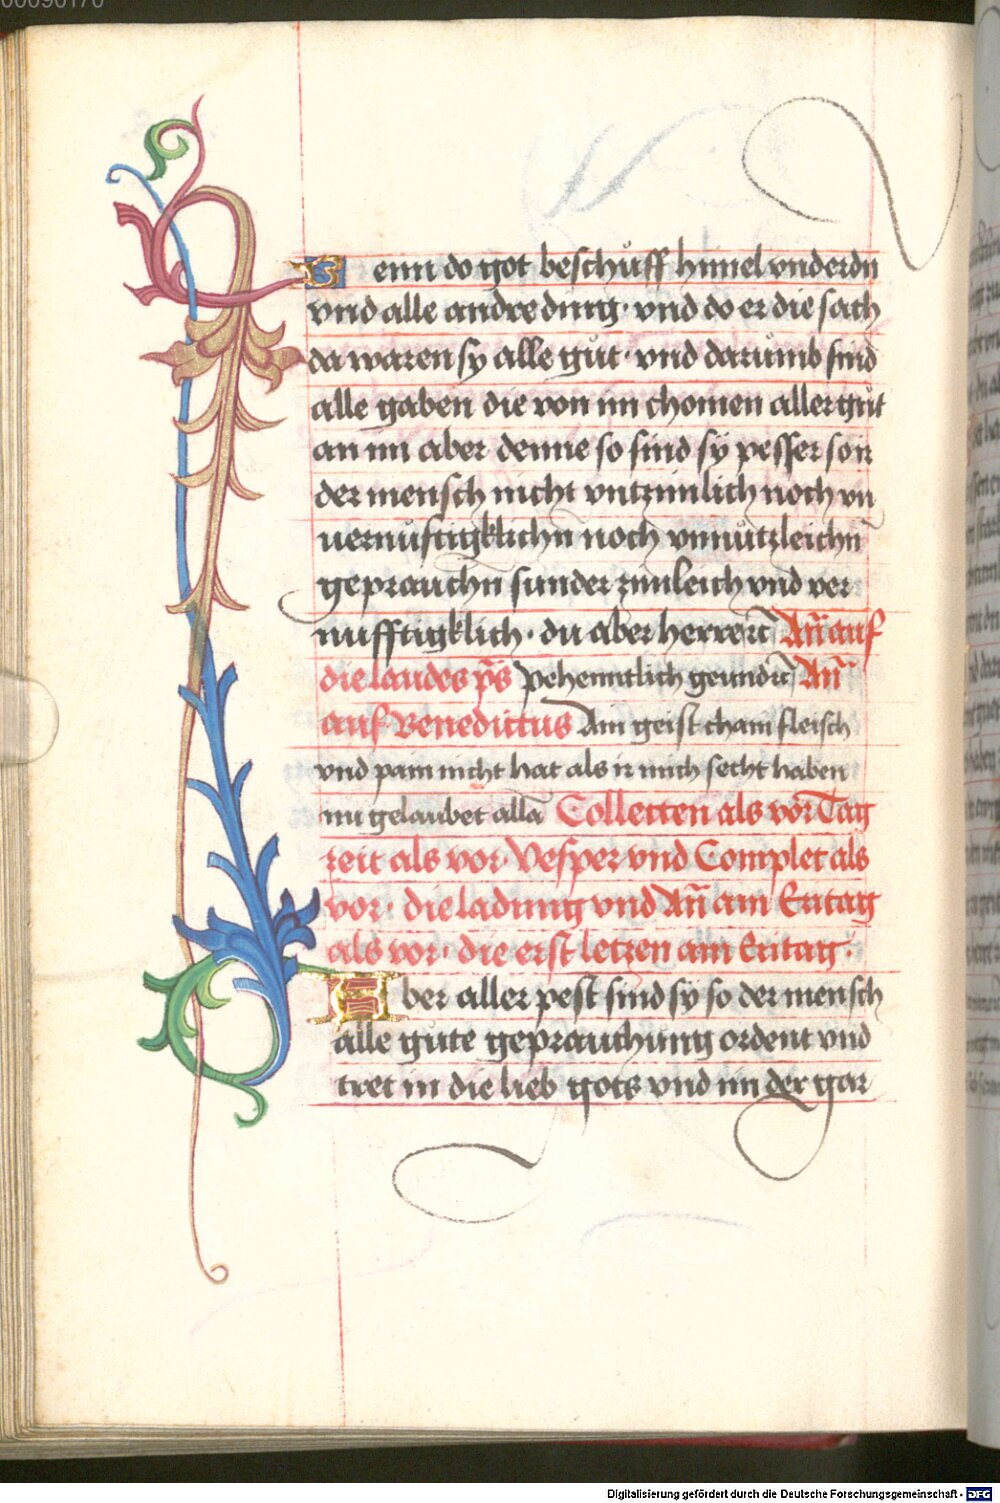 00090170
Wenn do got beschůff himel vnd erdn
vnd alle andre ding · vnd do er die sach
da waren sy alle gůt · vnd darumb sind
alle gaben die von im chomen aller gůt
an im aber denne so sind sÿ pesser so ir
der mensch nicht vntzimlich noch vn
uernůftigklichn noch vnnůtzleichn
geprauchn sunder zimleich vnd ver
nufftigklich · du aber herre ꝛc̄ An̄ auf
die laudes p̄s Pehenntlich ge und ꝛc̄ An̄
auf Benedictus Ain geist cham fleisch
vnd pain nicht hat als ir mich secht haben
nu gelaubet all̄a Collecten als vor Tag
zeit als vor · Vesper vnd Complet als
vor · die ladung vnd An̄ am Eritag
als vor · die erst letzen am Eritag ·
Aber aller pest sind sÿ so der mensch
alle gute geprauchung ordent vnd
tret in die lieb gots vnd im der gar
Digitalisierung gefördert durch die Deutsche Forschungsgemeinschaft - DFG